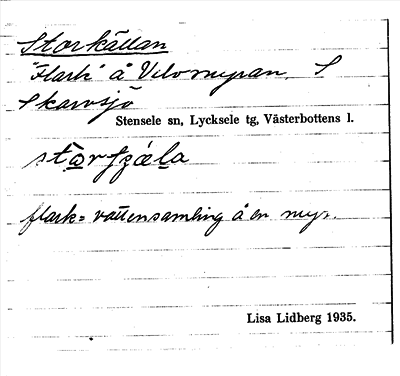 Storkällan
"Flark" å Velvmyran, S
Skarvsjö
Stensele sn, Lycksele tg, Västerbottens l.
flark = vattensamling å en myr.
Lisa Lidberg 1935.